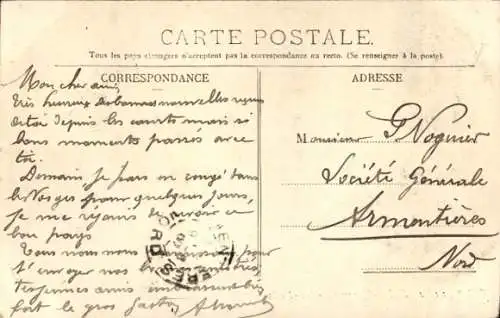 CARTE POSTALE.
Tous les pays étrangers n'acceptent pas la correspondance au recto. (Se renseigner à la poste).
CORRESPONDANCE
ADRESSE
Mon cher ami
Très heureux des bonnes nouvelles reçues
de toi depuis les courts mais si
bons moments passés avec
toi.
Demain, je pars en congé dans
les Vosges pour quelques jours,
je me réjouis de revoir ce
bon pays
Tous nous nous pour
t'envoyer nos
Monsieur G Noguier
Société Générale
Armentières
Nord